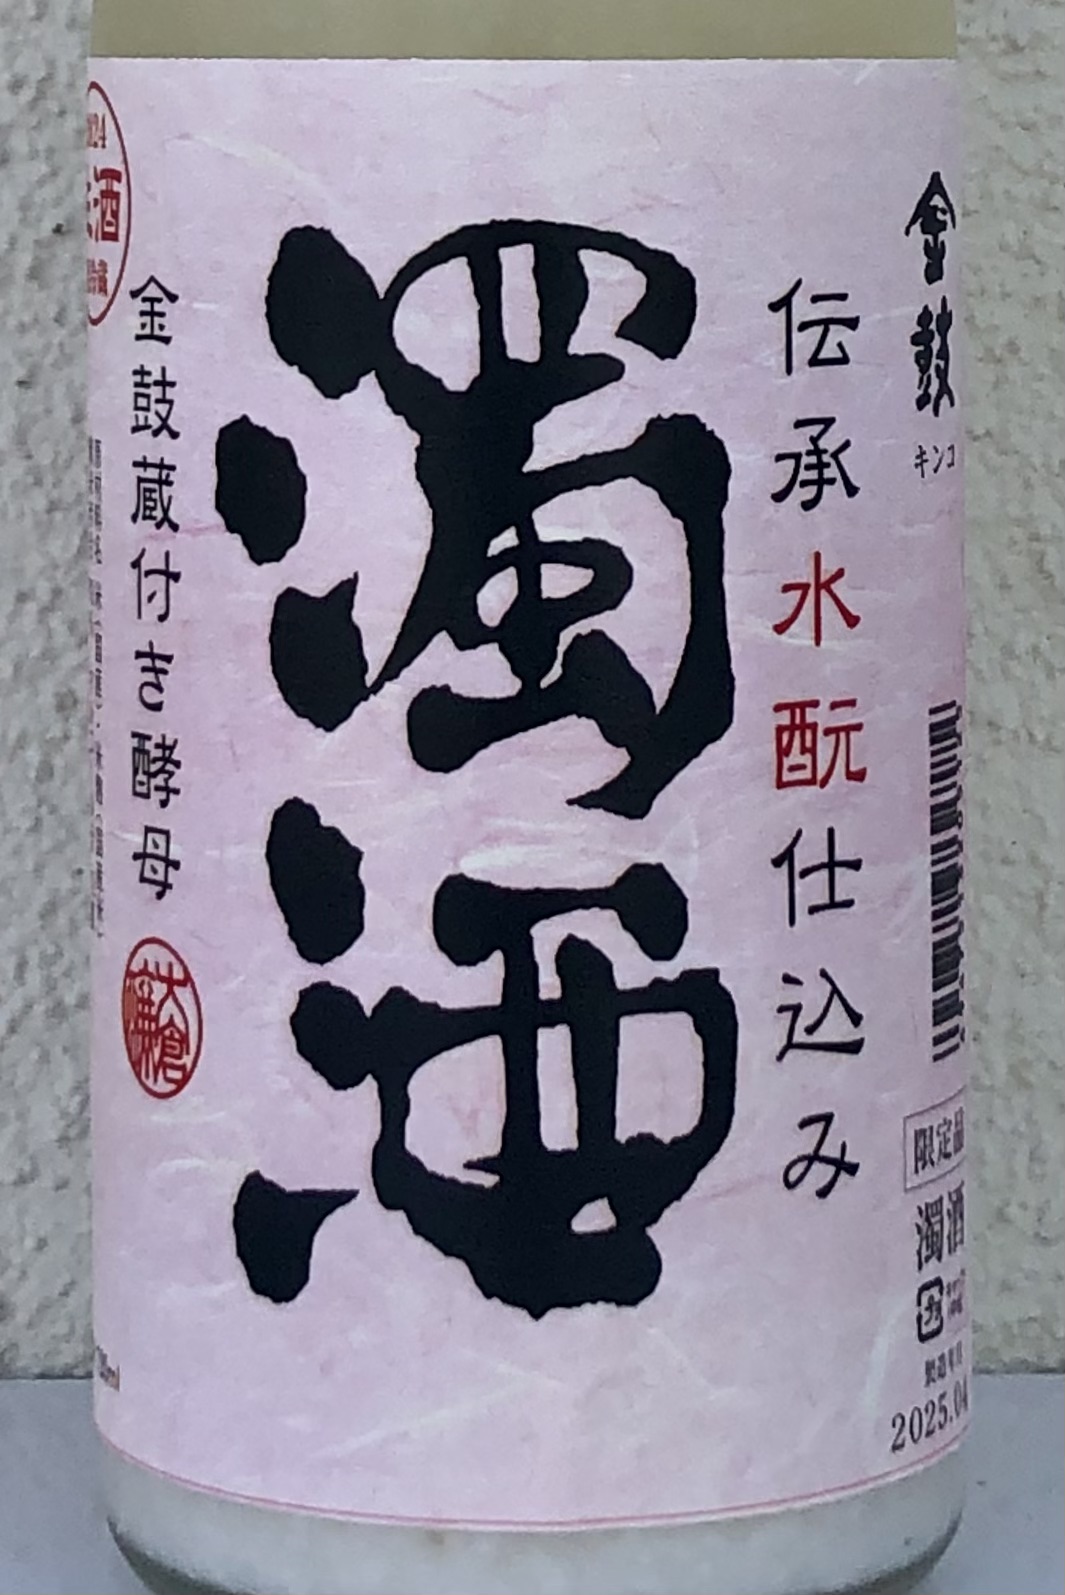 金鼓
キンコ
伝承水酛仕込み
濁酒
金鼓蔵付き酵母
大倉
限定品
濁酒
製造年月
2025.04